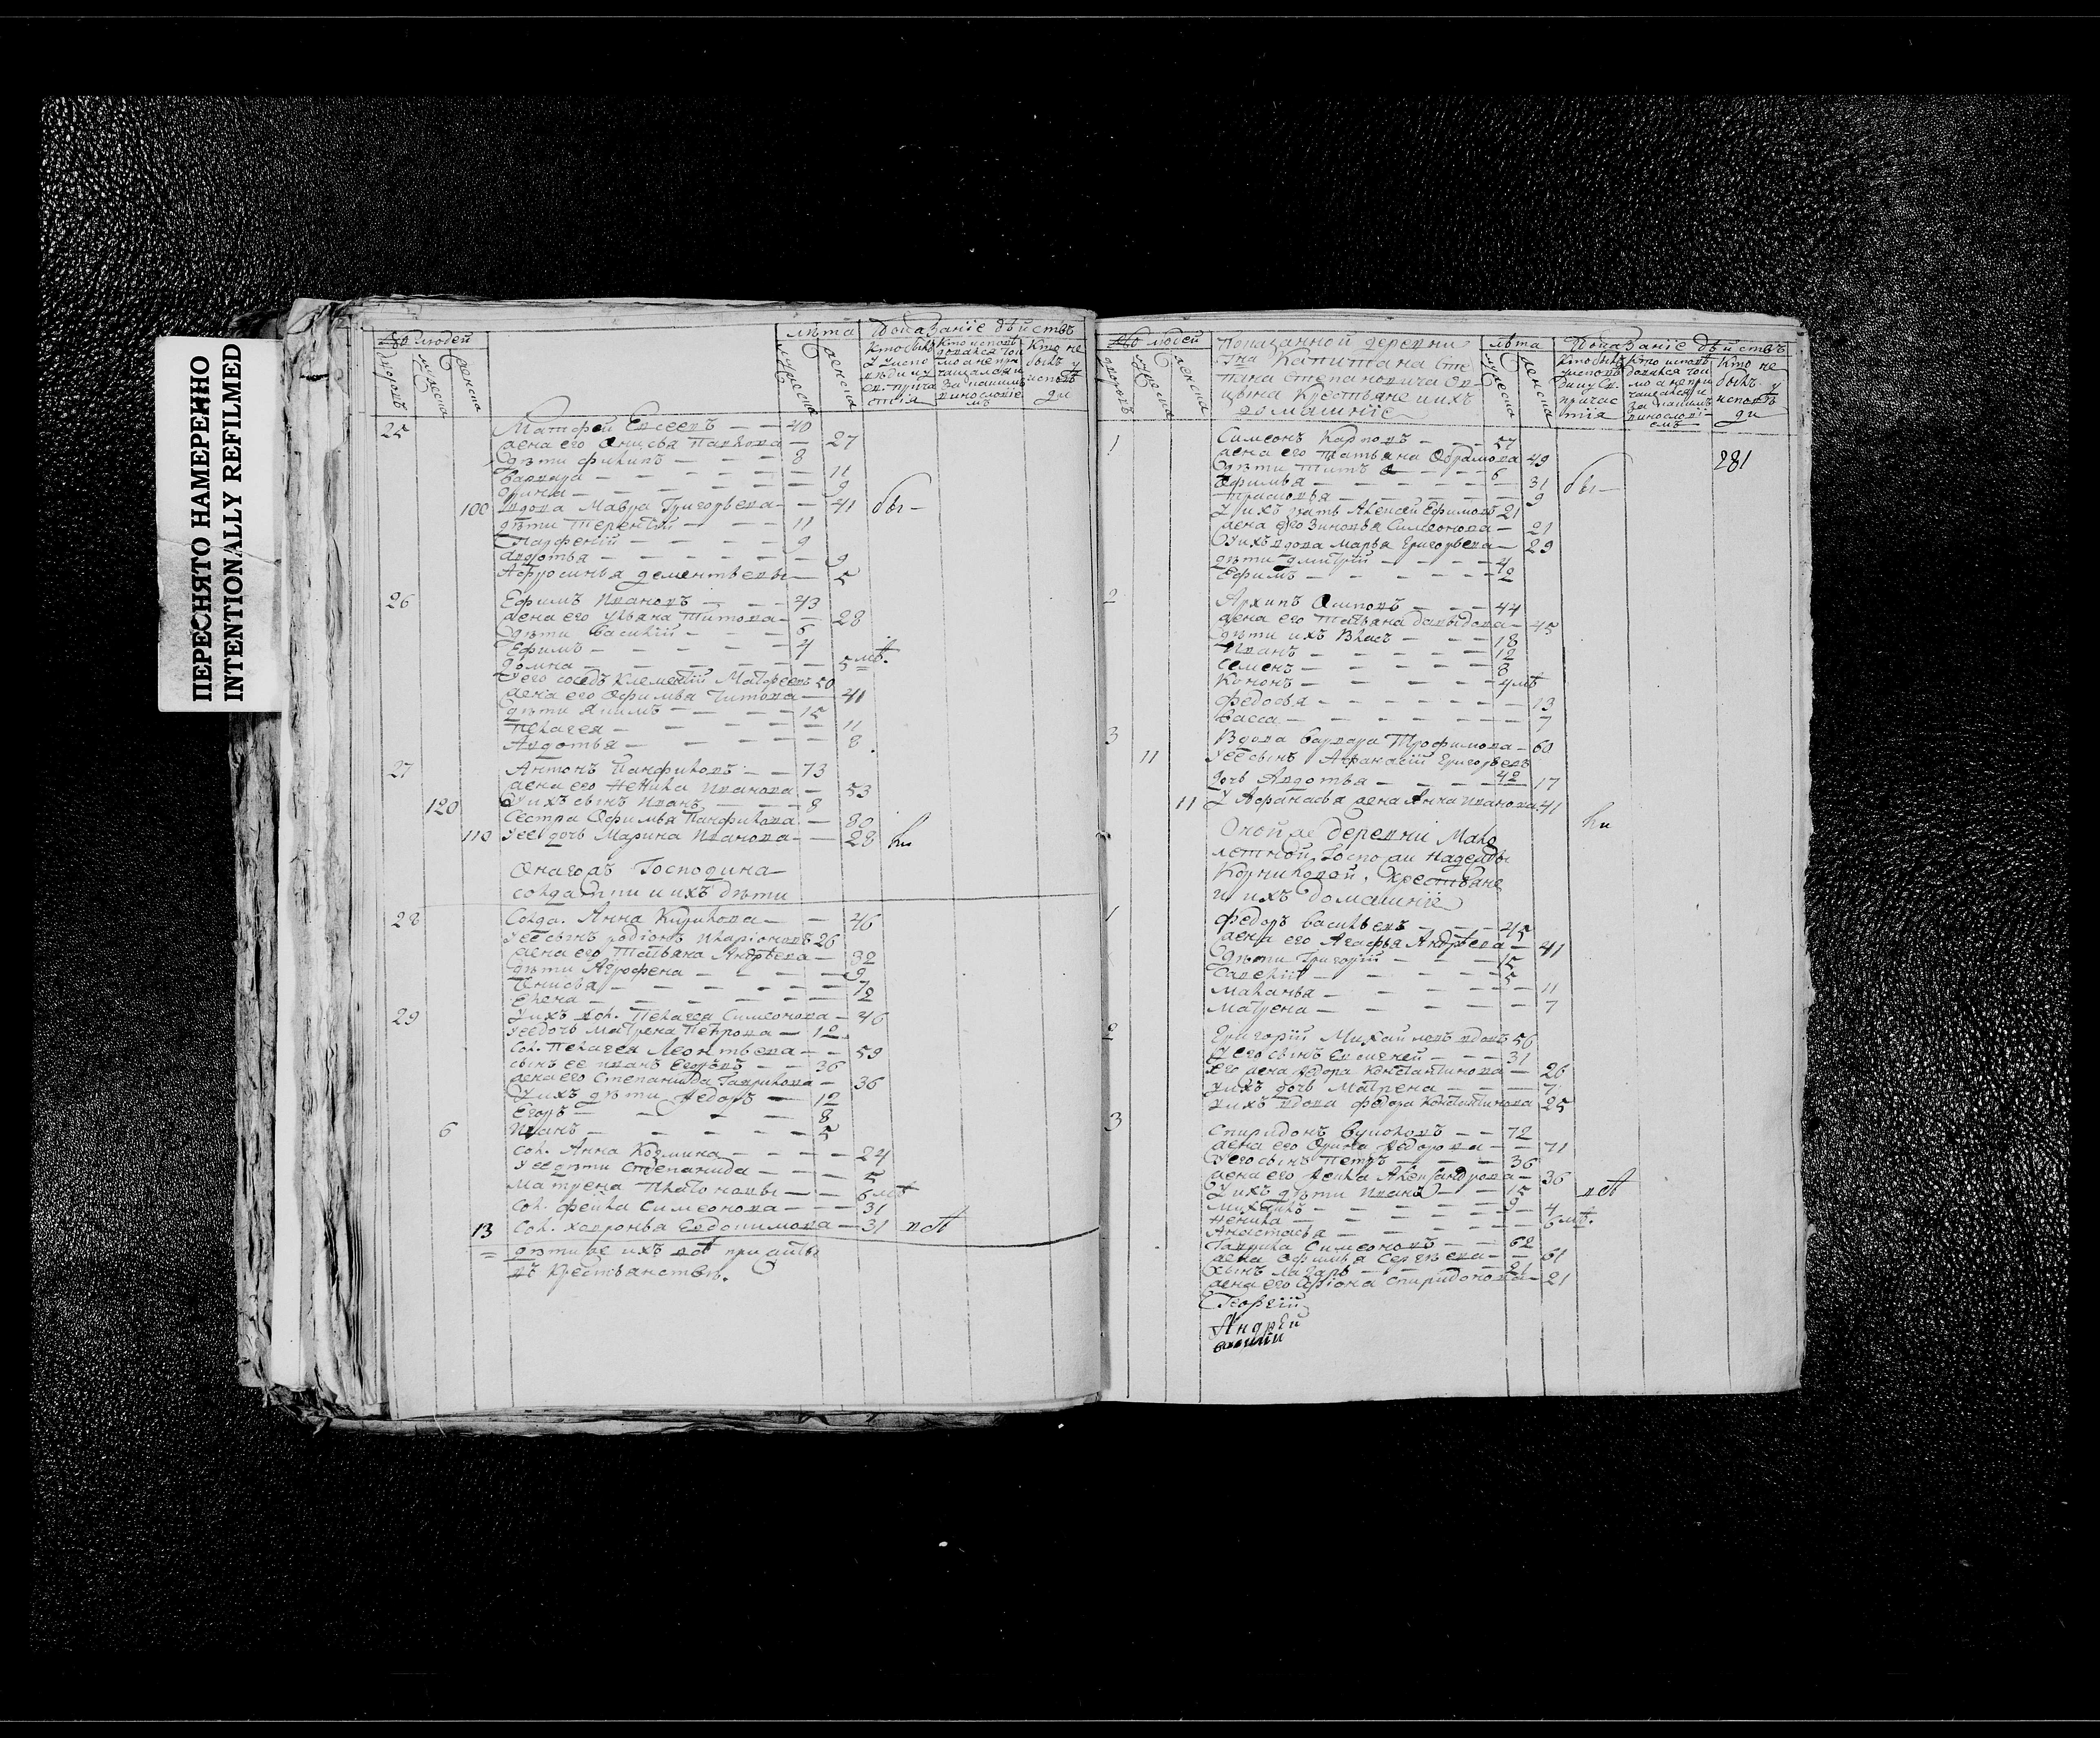 ПЕРЕСНЯТО НАМЕРЕННО
INTENTIONALLY REFILMED
людей
лѣта
Показаніе дѣйствъ
дворовъ
мужеска
женска
мужеска
женска
25 Матфей Евсеевъ — — 40
жена его Анисья Павлова — 27
дѣти Филипъ — — — 8
Варвара — — — — 11
Орина — — — — 9
100 вдова Мавра Григорьева — — 41 бы —
дѣти Терентій — — 11
Парфеній — — — 9
Авдотья — — — — 9
Афросинья Дементьевы — 5
26 Ефимъ Ивановъ — — — 43
жена его Ульяна Титова — — 28
дѣти Василій — — — 6
Ефимъ — — — — 4
Домна — — — — — 5 мѣ.
У его сосѣдъ Клементій Матфеевъ 50
жена его Офимья Титова — 41
дѣти Якимъ — — — 15
Пелагея — — — — 11
Авдотья — — — — 8
27 Антонъ Панфиловъ — — 73
жена его Ненила Иванова — 53
120 У ихъ сынъ Иванъ — — — 8
Сестра Офимья Панфилова — 80
110 У ее дочь Марина Иванова — — 28
Онагожъ Господина
солдатки и ихъ дѣти
28 Солда. Анна Кирилова — — 46
У ее сынъ Родіонъ Иларіоновъ 26
жена его Татьяна Андрѣева — 32
дѣти Агрофена — — — — 9
Елена — — — — — 2
29 У ихъ сол. Пелагея Симеонова — 46
У ее дочь Матрена Петрова — 12
Сол. Пелагея Леонтьева — — 59
сынъ ее Иванъ Егоровъ — — 36
жена его Степанида Гаврилова — 36
У ихъ дѣти Федоръ — 12
Егоръ — — — — 8
6 Иванъ — — — — 5
Сол. Анна Козмина — — — — 24
У ее дѣти Степанида — — — 5
Матрена Платоновы — — 6 мѣ
Сол. Фекла Симеонова — — — 31
13 Сол. Хавронья Евдокимова — 31
дѣти же ихъ при отцѣ
въ Крестьянствѣ.
людей
Показанной деревни
Капитана Сте
пана Степановича
Крестьяне и ихъ
домашніе
лѣта
Показаніе дѣйствъ
281
1 Симеонъ Карповъ — — — 57
жена его Татьяна Обрамова 49
дѣти Титъ — — — 6
Офимья — — — — 31 бы —
Прасковья — — — — 9
У ихъ зять Алексей Ефимовъ 21
жена его Зиновья Симеонова — 21
У ихъ вдова Марья Григорьева — 29
дѣти Дмитрій — — — — 4
Ефимъ — — — — 2
2 Архипъ Осиповъ — — — 44
жена его Татьяна Давыдова — 45
дѣти ихъ Власъ — — — 18
Иванъ — — — — 12
Семенъ — — — — 8
Кононъ — — — — 4 мѣ
Федосья — — — — — 13
Васса — — — — — 7
3 Вдова Варвара Трофимова — 60
11 У ее сынъ Афанасій Григорьевъ 42
дочь Авдотья — — — 17
11 У Афанасья жена Анна Иванова 41
Оной же деревни Мало
летной Госпожи Надежды
Корниловой Крестьяне
и ихъ домашніе
1 Федоръ Васильевъ — — — 45
жена его Агафья Андрѣева — 41
дѣти Григорій — — — 15
Савелій — — — — 5
Маланья — — — — 11
Матрена — — — — 7
2 Григорій Михайловъ вдовъ 56
У его сынъ Евсигней — — — 31
его жена Федора Константинова — 26
У ихъ дочь Матрена — — — 7
У ихъ вдова Федора Константинова 25
3 Спиридонъ — — 72
жена его Орина Федорова — — 71
У его сынъ Петръ — — — 36
жена его Фекла Александрова — 36
У ихъ дѣти Иванъ — — 15
Михаилъ — — — — 9
Ненила — — — — 4
Анастасья — — — — 6 мѣ.
Гаврила Симеоновъ — — 62
жена Офимья Сергѣева — — 61
Сынъ Лазарь — — — 21
жена его Спиридонова — 21
Георгій
Андрей
василіи